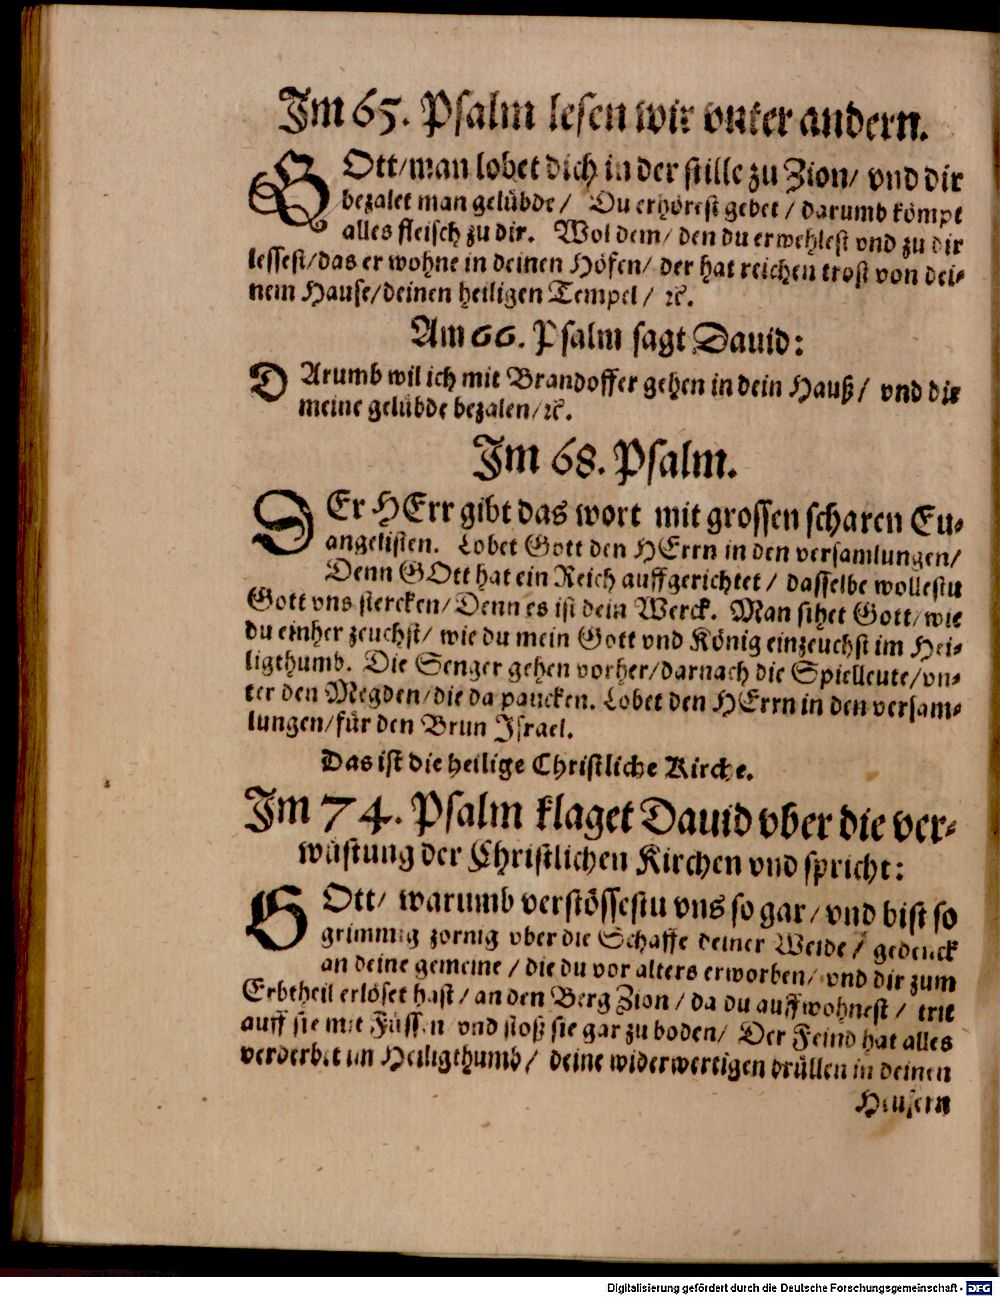 Im 65. Psalm lesen wir vnter andern.
GOtt/ man lobet dich in der stille zu Zion/ vnd dir
bezalet man gelübde/ Du erhörest gebet / darumb kömpt
alles fleisch zu dir. Wol dem/ den du erwehlest vnd zu dir
lessest/das er wohne in deinen Höfen/ der hat reichen trost von dei-
nem Hause/deinen heiligen Tempel / ꝛc.
Am 66. Psalm sagt Dauid:
DArumb wil ich mit Brandoffer gehen in dein Hauß/ vnd dir
meine gelübde bezalen/ꝛc.
Im 68. Psalm.
DEr HErr gibt das wort mit grossen scharen Eu-
angelisten. Lobet Gott den HErrn in den versamlungen/
Denn GOtt hat ein Reich auffgerichtet / dasselbe wollestu
Gott vns stercken/ Denn es ist dein Werck. Man sihet Gott/ wie
du einher zeuchst/ wie du mein Gott vnd König einzeuchst im Hei-
ligthumb. Die Senger gehen vorher/darnach die Spielleute/vn-
ter den Megden/die da paucken. Lobet den HErrn in den versam-
lungen/für den Brun Israel.
Das ist die heilige Christliche Kirche.
Im 74. Psalm klaget Dauid vber die ver-
wüstung der Christlichen Kirchen vnd spricht:
GOtt/ warumb verstössestu vns so gar/ vnd bist so
grimmig zornig vber die Schaffe deiner Weide / gedenck
an deine gemeine / die du vor alters erworben/ vnd dir zum
Erbtheil erlöset hast / an den Berg Zion / da du auff wohnest / trit
auff sie mit Füssen vnd stoß sie gar zu boden/ Der Feind hat alles
verderbet im Heiligthumb / deine widerwertigen brüllen in deinen
Heusern
Digitalisierung gefördert durch die Deutsche Forschungsgemeinschaft - DFG